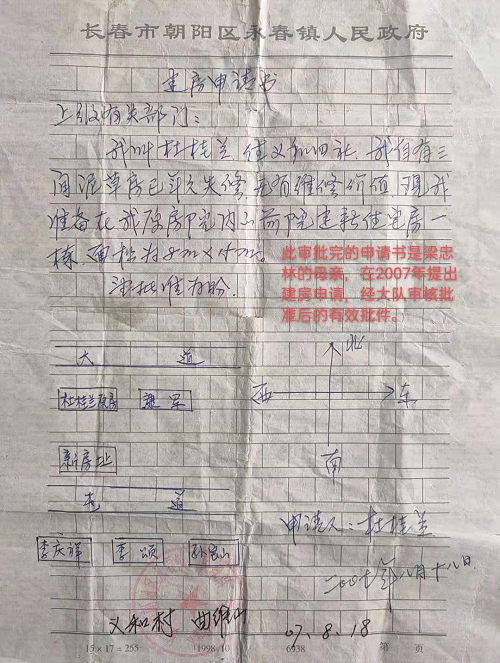 长春市朝阳区永春镇人民政府
建房申请书
上级有关部门：
我叫杜桂兰住义和四社.我自有三
间泥草房已年久失修,无有维修价值,现我
准备在我原房院内以前院建新住宅房一
栋,面积为8m×
请批准为盼.
此审批完的申请书是梁忠
林的母亲，在2007年提出
建房申请，经大队审核批
准后的有效批件。
大 道
杜桂兰原房
军
新房址
屯 道
李庆祥
李颂
北
西
东
南
申请人：杜桂兰
二00七年八月十八日
义和村
07.8.18
15×17=255
1998.10
6938
第 页